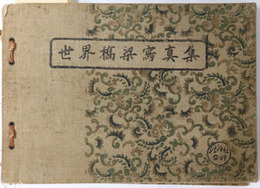 世界橋梁寫真集